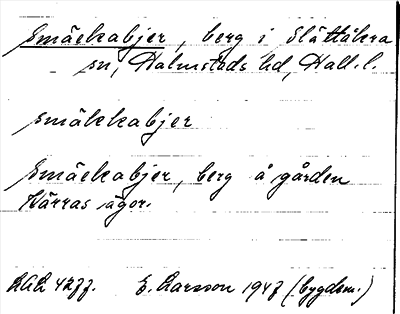 Smäckabjer, berg i Slättåkra
sn, Halmstads hd, Hall. l.
smäkkabjer
Smäckabjer, berg å gården
Härras ägor.
E. Larsson 1947 (bygdem.)